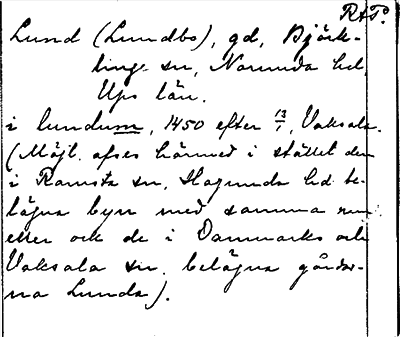 RAP.
Lund (Lundbo), gd, Björk-
linge sn, Norunda hd,
Ups län.
i lundum, 1450 efter 13/1, Vaksala.
(Möjl. afses härmed i stället den
i Ramsta sn, Hagunda hd be-
lägna byn med samma namn
eller ock de i Danmarks och
Vaksala sn. belägna gårdar-
na Lunda).